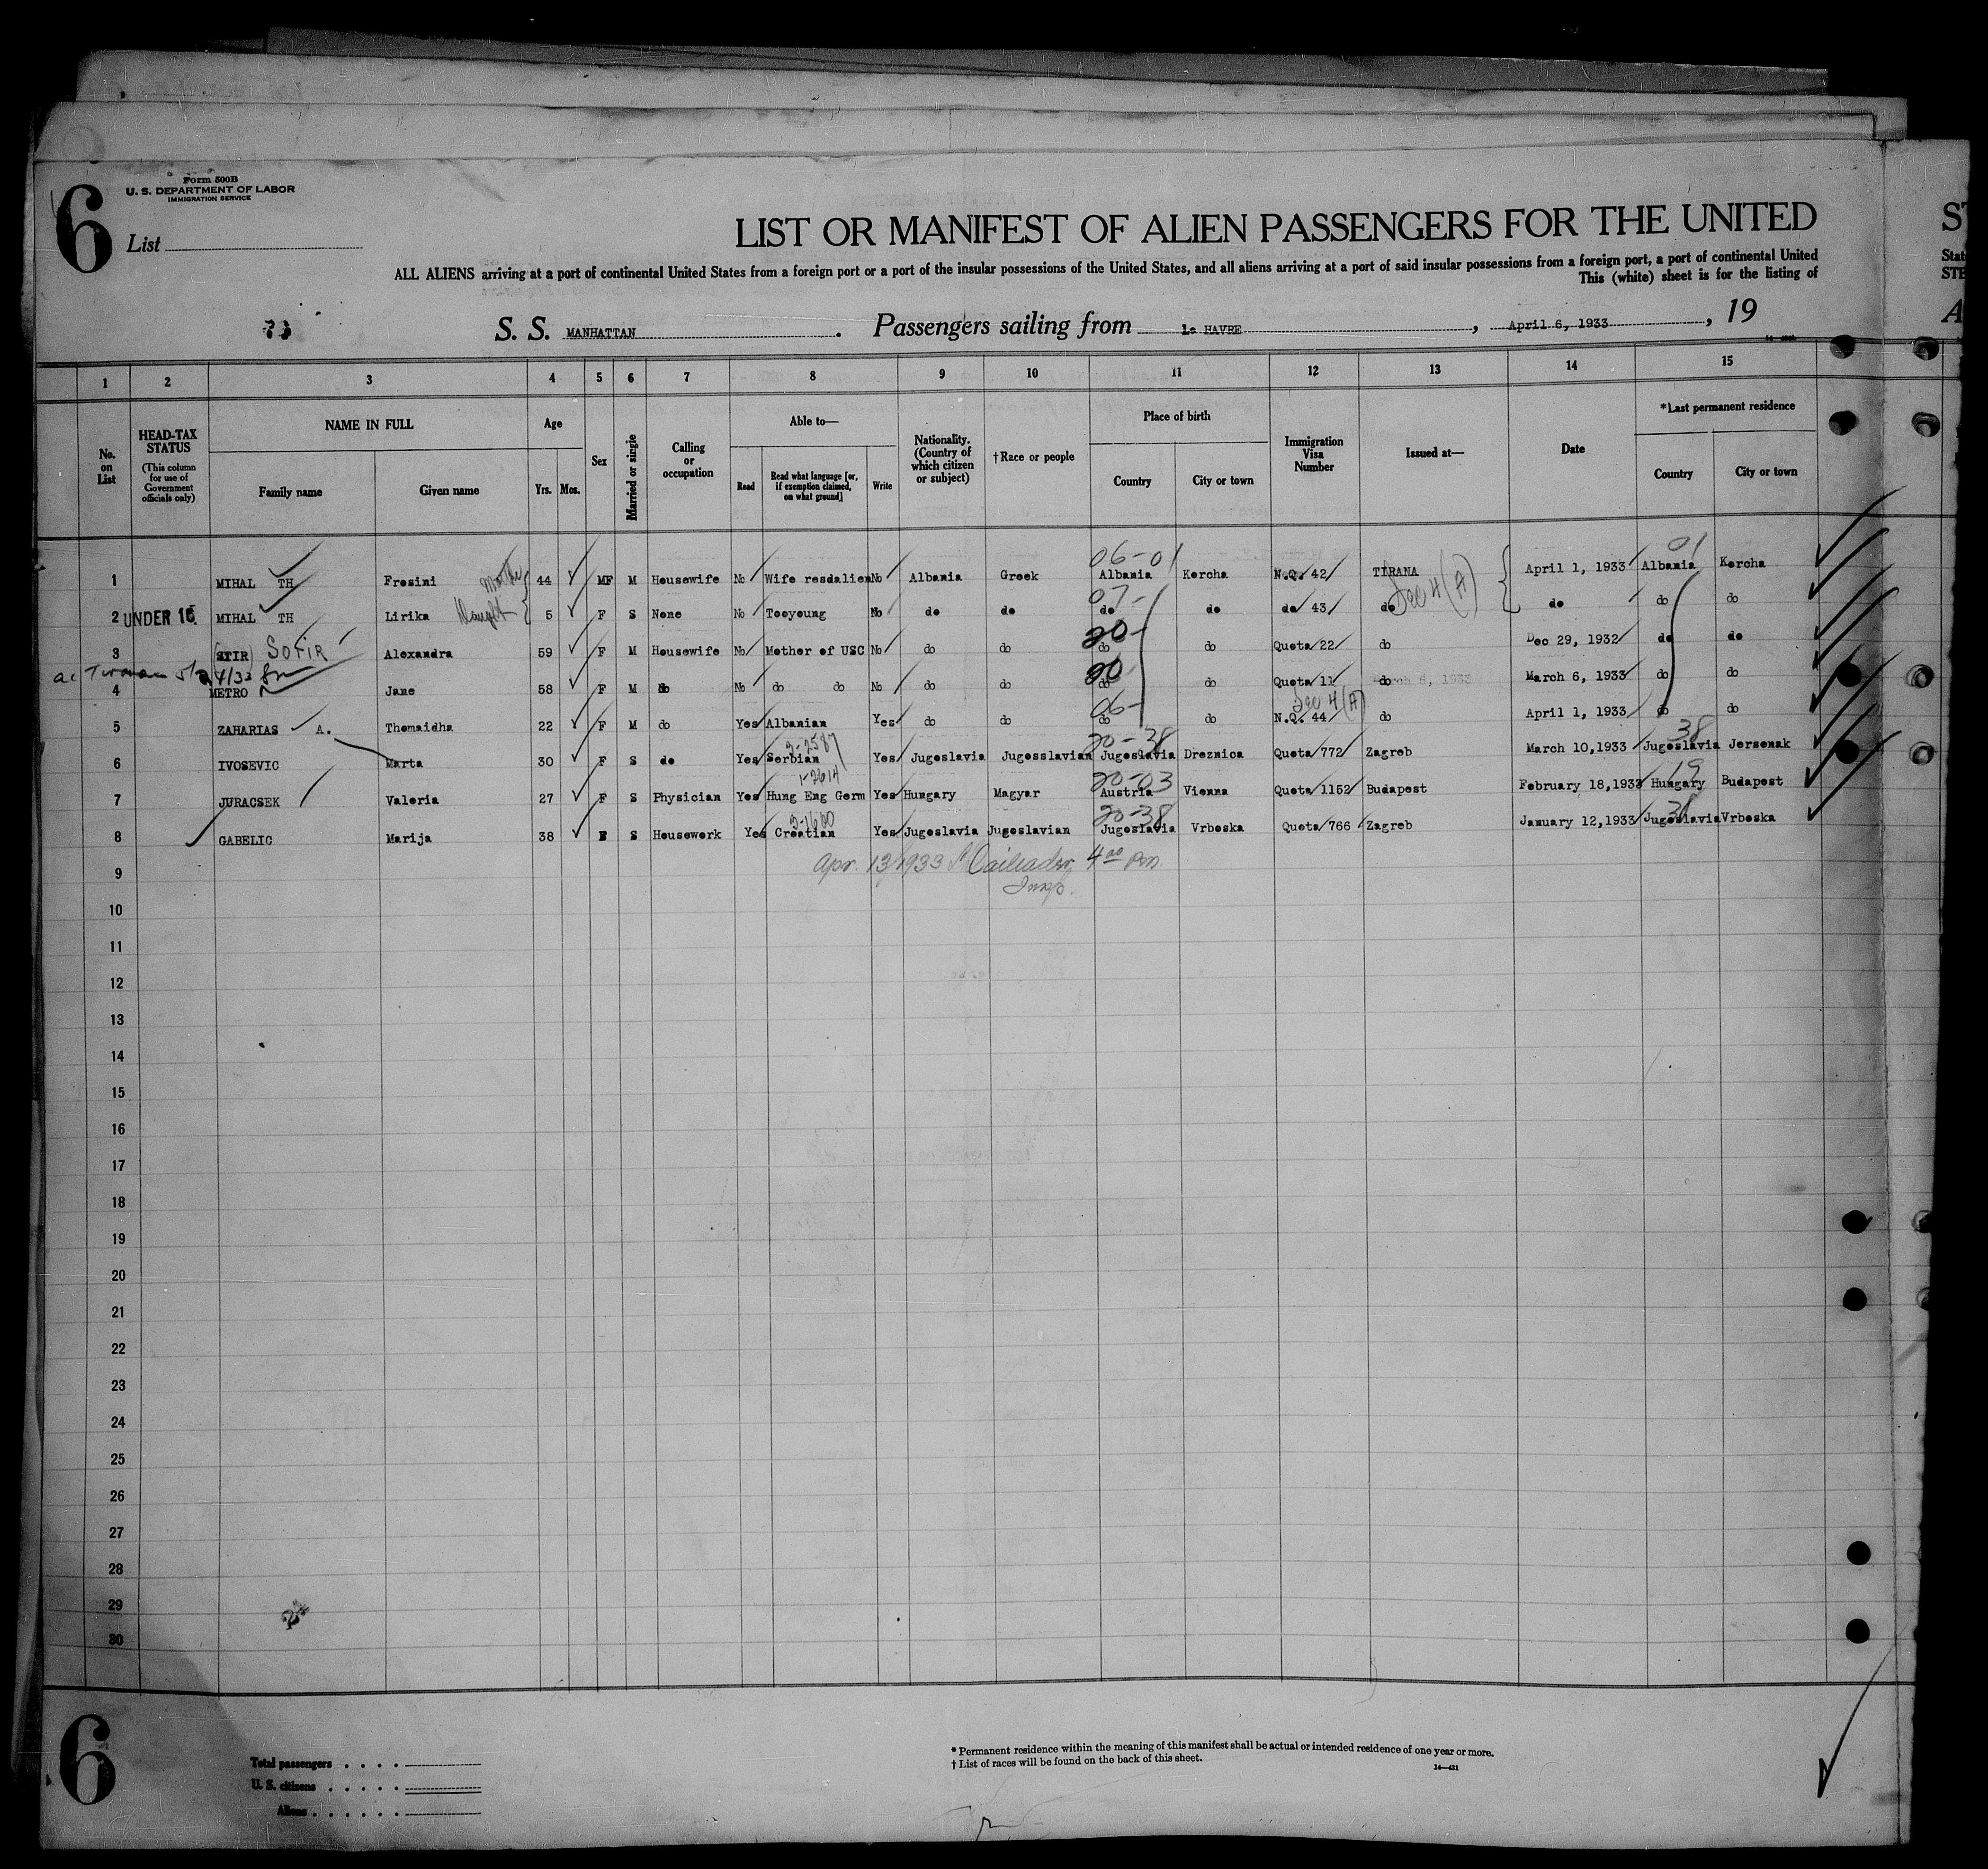 6
Form 500B
U. S. DEPARTMENT OF LABOR
IMMIGRATION SERVICE
List
LIST OR MANIFEST OF ALIEN PASSENGERS FOR THE UNITED
ST
ALL ALIENS arriving at a port of continental United States from a foreign port or a port of the insular possessions of the United States, and all aliens arriving at a port of said insular possessions from a foreign port, a port of continental United
This (white) sheet is for the listing of
S. S. MANHATTAN. Passengers sailing from le HAVRE, April 6, 1933, 19
1 2 3 4 5 6 7 8 9 10 11 12 13 14 15
No. on List
HEAD-TAX STATUS (This column for use of Government officials only)
NAME IN FULL
Family name Given name
Age
Yrs. Mos.
Sex
Married or single
Calling or occupation
Able to—
Read
Read what language [or, if exemption claimed, on what ground]
Write
Nationality. (Country of which citizen or subject)
†Race or people
Place of birth
Country City or town
Immigration Visa Number
Issued at—
Date
*Last permanent residence
Country City or town
06-01 01
1 MIHAL TH Fresini Mother 44 MF M Housewife No Wife resdalien No Albania Greek Albania Korcha N.Q. 42 TIRANA April 1, 1933 Albania Korcha
07- Sec 4 (A)
2 UNDER 16 MIHAL TH Lirika Daught 5 F S None No Tooyoung No do do do do do 43 do do do do
20-
3 (STIR) SOTIR Alexandra 59 F M Housewife No Mother of USC No do do do do Quota 22 do Dec 29, 1932 do do
4/33
20
4 METRO Jane 58 F M do No do do No do do do do Quota 11 do March 6, 1933 do do
06- Sec 4 (A)
5 ZAHARIAS A. Themaidha 22 F M do Yes Albanian Yes do do do do N.Q. 44 do April 1, 1933 do do
3-2587 20-38 38
6 IVOSEVIC Marta 30 F S do Yes Serbian Yes Jugoslavia Jugosslavian Jugoslavia Dreznica Quota 772 Zagreb March 10,1933 Jugoslavia Jersenak
1-2614 20-03 19
7 JURACSEK Valeria 27 F S Physician Yes Hung Eng Germ Yes Hungary Magyar Austria Vienna Quota 1152 Budapest February 18,1933 Hungary Budapest
3-1600 20-38 38
8 GABELIC Marija 38 F S Housework Yes Croatian Yes Jugoslavia Jugoslavian Jugoslavia Vrboska Quota 766 Zagreb January 12,1933 Jugoslavia Vrboska
Apr. 13 1933 4 00 Pm.
Insp.
9
10
11
12
13
14
15
16
17
18
19
20
21
22
23
24
25
26
27
28
29
30
6
Total passengers
U. S. citizens
Aliens
* Permanent residence within the meaning of this manifest shall be actual or intended residence of one year or more.
† List of races will be found on the back of this sheet.
14—431